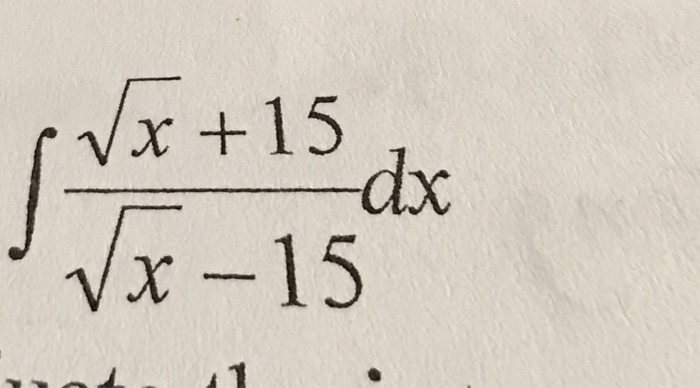 ∫ (√x + 15)/(√x − 15) dx